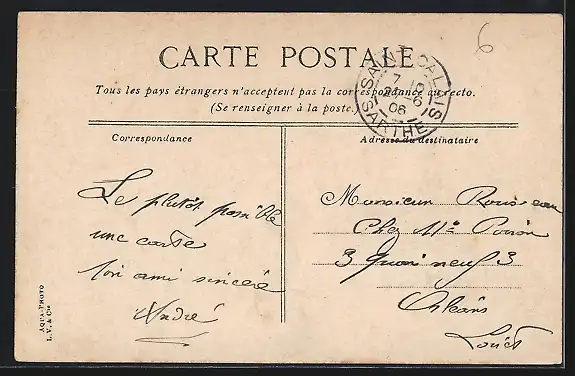 6
CARTE POSTALE
Tous les pays étrangers n'acceptent pas la correspondance au recto.
(Se renseigner à la poste.)
SAINT CALAIS
7 10
6
06
SARTHE
Correspondance
Adresse du destinataire
Le plutôt possible
une carte
ton ami sincère
André
Monsieur Rousseau
Chez Me
3 Quai neuf 3
Orléans
Loiret
AQUA-PHOTO
L. V. & Cie